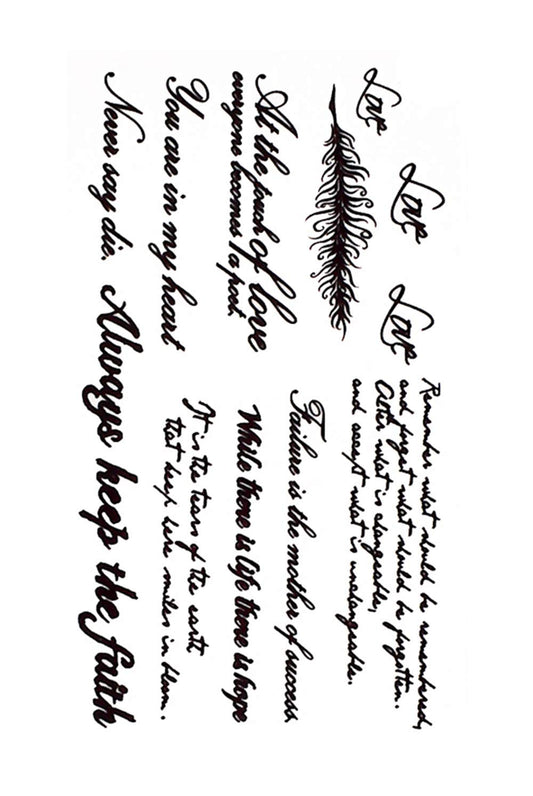 Love
Love
Love
Remember what should be remembered,
and forget what should be forgotten.
Alter what is changeable,
and accept what is unchangeable.
At the touch of love
everyone becomes a poet
Failure is the mother of success.
You are in my heart
While there is life there is hope
It is the tears of the earth
that keep here smiles in bloom.
Never say die.
Always keep the faith